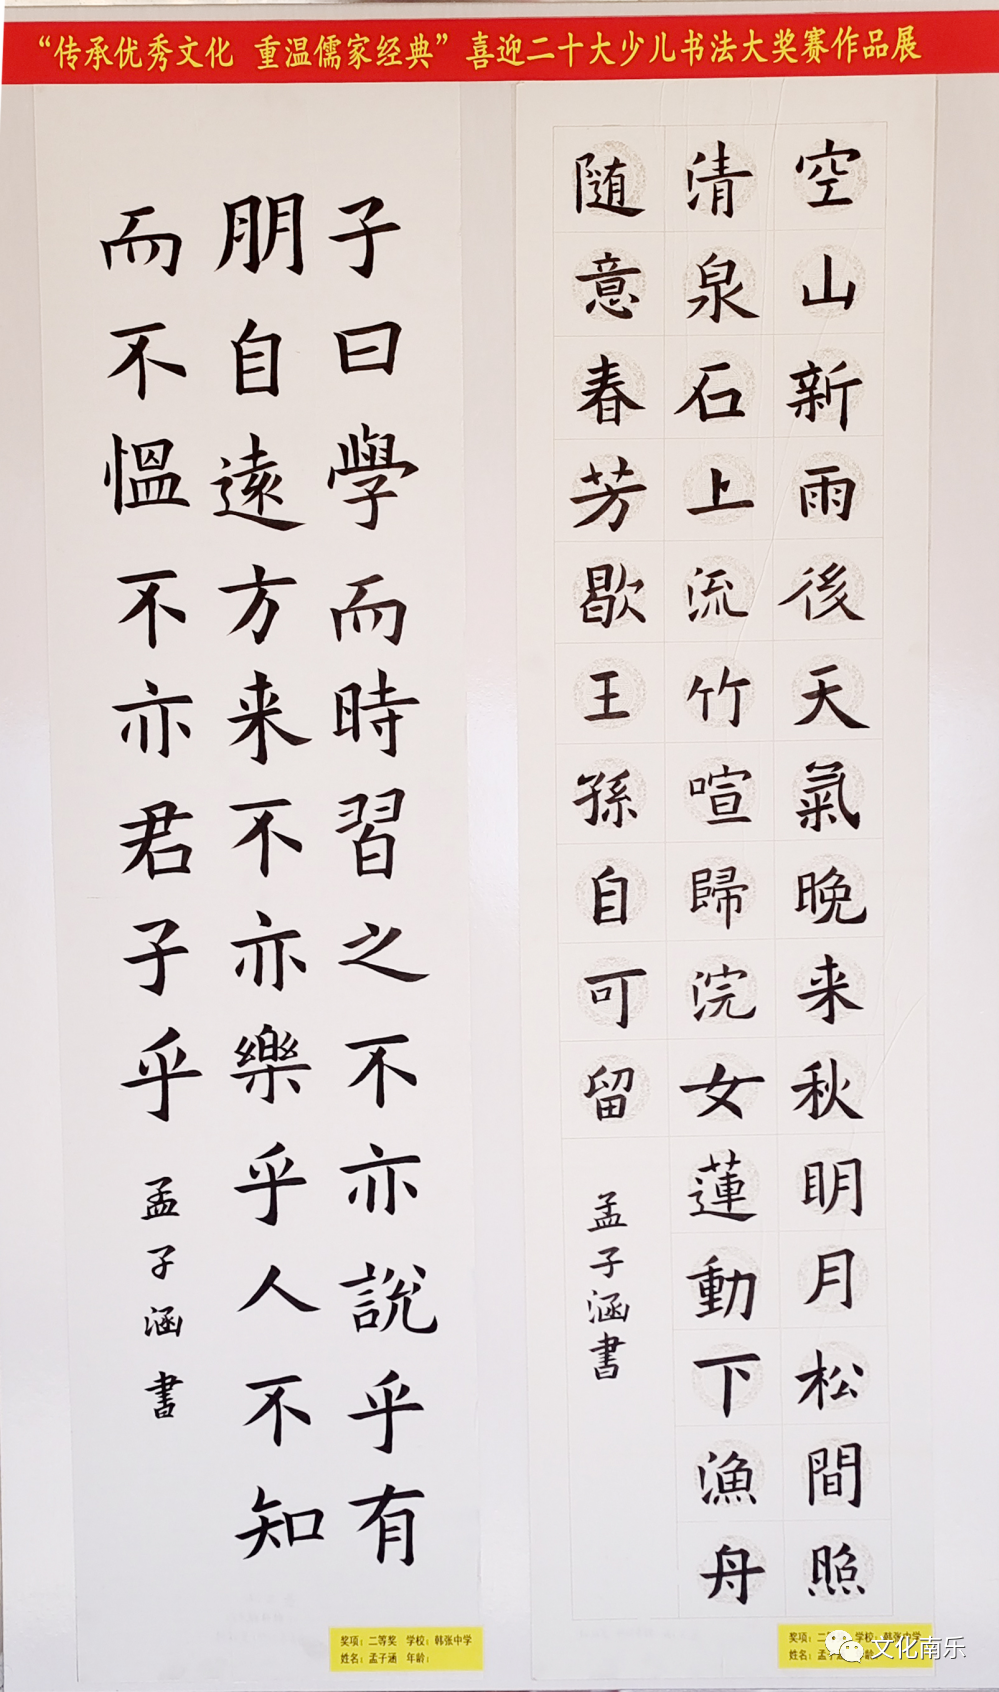 “传承优秀文化 重温儒家经典”喜迎二十大少儿书法大奖赛作品展
空山新雨後天氣晚来秋明月松間照
清泉石上流竹喧歸浣女蓮動下漁舟
随意春芳歇王孫自可留
孟子涵書
子曰學而時習之不亦説乎有
朋自遠方来不亦樂乎人不知
而不愠不亦君子乎
孟子涵書
奖项：二等奖 学校：韩张中学
姓名：孟子涵 年龄：
奖项：二等 学校：韩张中学
姓名：孟子
文化南乐